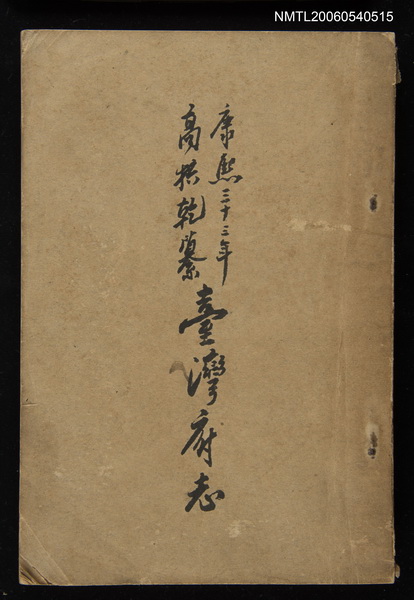 NMTL20060540515
康熙三十三年
高拱乾纂
臺灣府志